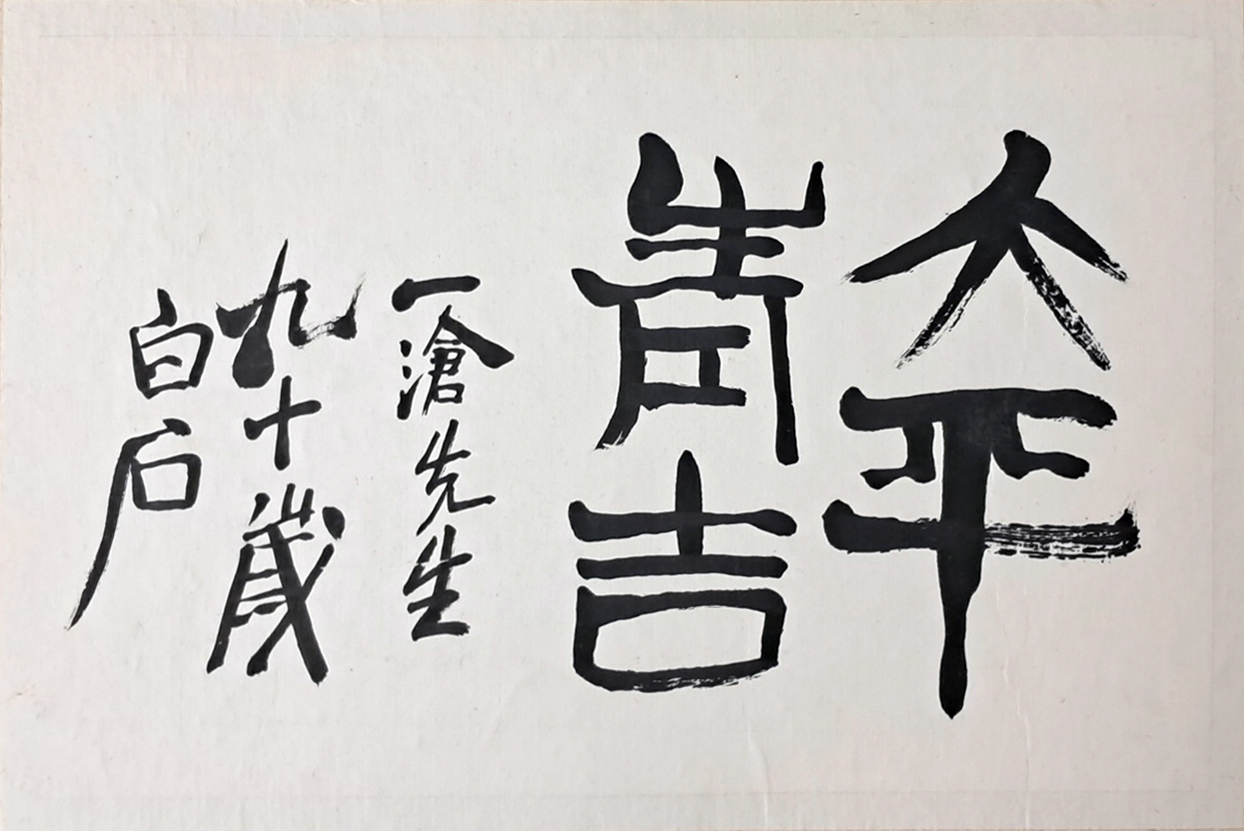 大平
青吉
一滄先生
九十歲
白石